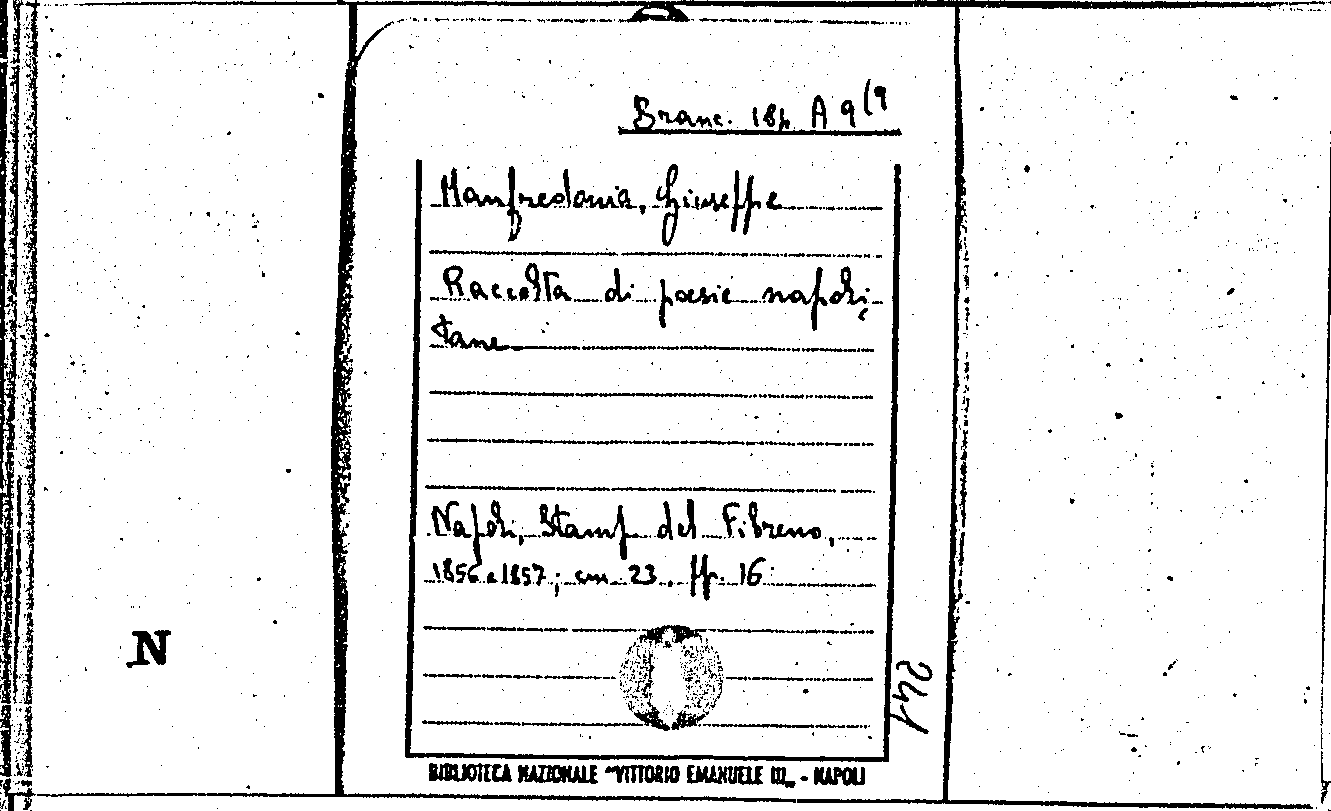 Branc. 18h A 9(9
Manfredonia, Giuseppe
Raccolta di poesie napoli-
tane
Napoli, Stamp. del Fibreno,
1856 e 1857; cm 23. pp. 16
N
241
BIBLIOTECA NAZIONALE "VITTORIO EMANUELE III„ - NAPOLI